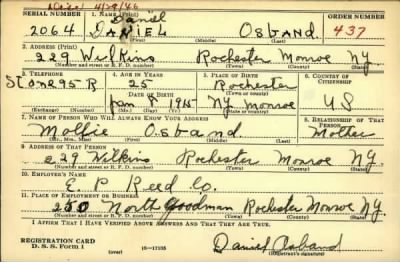 Died 4/29/46
SERIAL NUMBER 1. NAME (Print) ORDER NUMBER
Daniel
2064 DANIEL Osband. 437
(First) (Middle) (Last)
2. ADDRESS (Print)
229 Wilkins Rochester Monroe NY
(Number and street or R. F. D. number) (Town) (County) (State)
3. TELEPHONE 4. AGE IN YEARS 5. PLACE OF BIRTH 6. COUNTRY OF CITIZENSHIP
25 Rochester
DATE OF BIRTH (Town or county)
Jan 8 1915 NY Monroe US
(Exchange) (Number) (Mo.) (Day) (Yr.) (State or country)
7. NAME OF PERSON WHO WILL ALWAYS KNOW YOUR ADDRESS 8. RELATIONSHIP OF THAT PERSON
Mollie Osband Mother
(Mr., Mrs., Miss) (First) (Middle) (Last)
9. ADDRESS OF THAT PERSON
229 Wilkins Rochester Monroe NY
(Number and street or R. F. D. number) (Town) (County) (State)
10. EMPLOYER'S NAME
E. P. Reed Co.
11. PLACE OF EMPLOYMENT OR BUSINESS
250 North Goodman Rochester Monroe NY.
(Number and street or R. F. D. number) (Town) (County) (State)
I AFFIRM THAT I HAVE VERIFIED ABOVE ANSWERS AND THAT THEY ARE TRUE.
REGISTRATION CARD
D. S. S. Form 1 (over) 16—17105
Daniel Osband
(Registrant's signature)